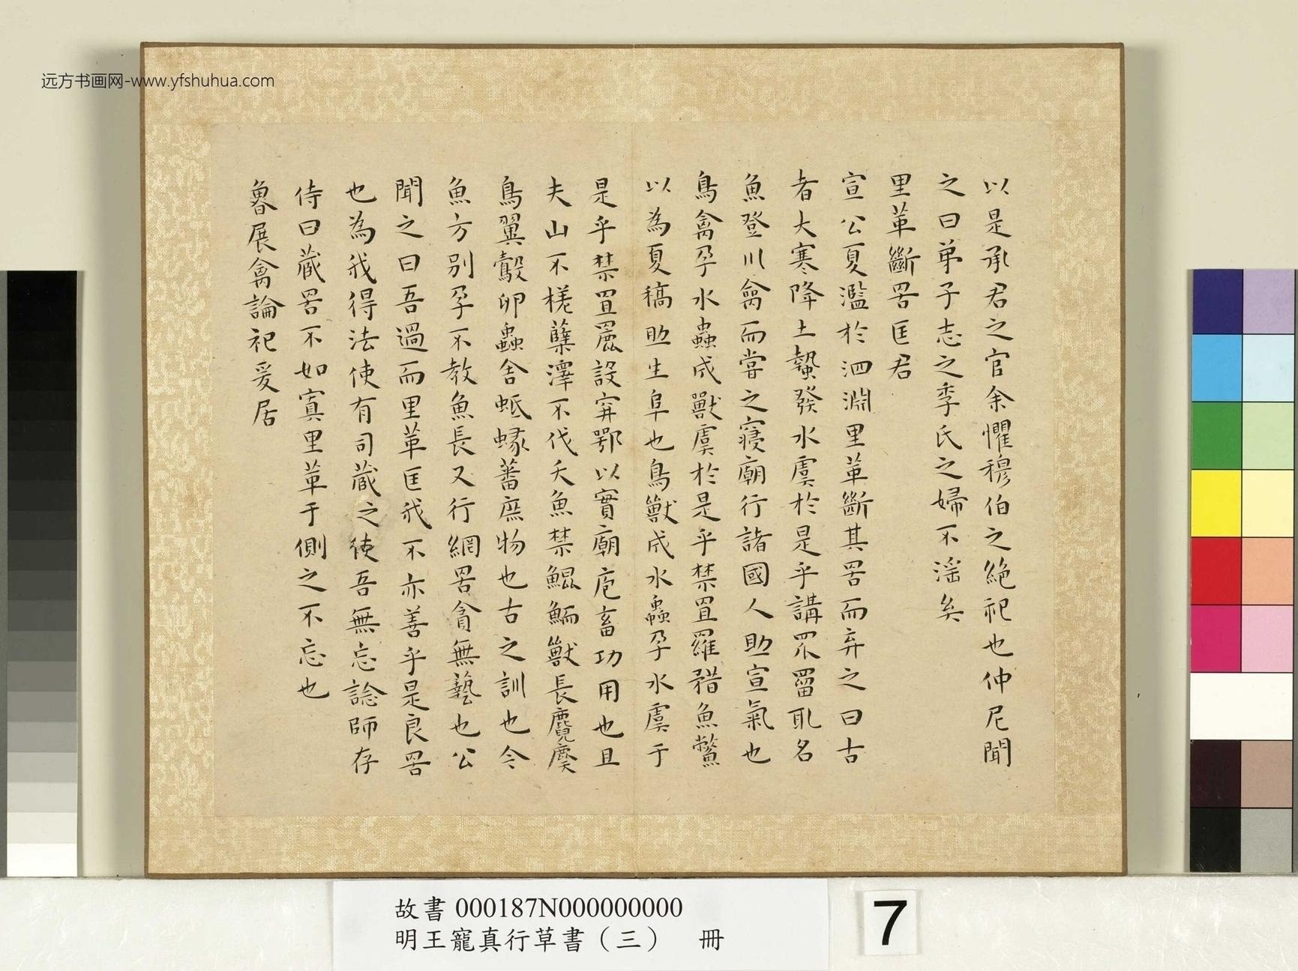 远方书画网-www.yfshuhua.com
以是承君之官余懼穆伯之絕祀也仲尼聞
之曰弟子志之季氏之婦不淫矣
里革斷罟匡君
宣公夏濫於泗淵里革斷其罟而弃之曰古
者大寒降土蟄發水虞於是乎講罛罶取名
魚登川禽而嘗之寢廟行諸國人助宣氣也
鳥禽孕水蟲成獸虞於是乎禁罝羅矠魚鱉
以為夏犒助生阜也鳥獸成水蟲孕水虞于
是乎禁罝䍡設穽鄂以實廟庖畜功用也且
夫山不槎櫱澤不伐夭魚禁鯤鮞獸長麑麌
鳥翼鷇卵蟲舍蚳蝝蕃庶物也古之訓也今
魚方別孕不教魚長又行網罟貪無藝也公
聞之曰吾過而里革匡我不亦善乎是良罟
也為我得法使有司藏之使吾無忘諗師存
侍曰藏罟不如寘里革于側之不忘也
魯展禽論祀爰居
故書 000187N000000000
明王寵真行草書（三） 冊
7